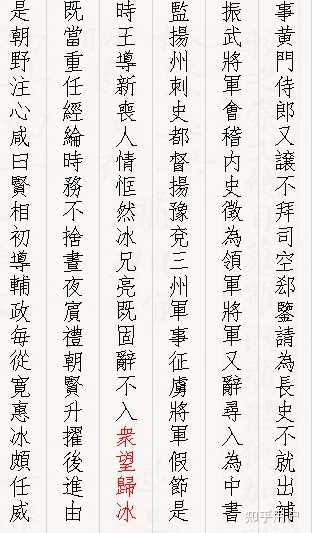 事黃門侍郎又讓不拜司空郄鑒請為長史不就出補
振武將軍會稽內史徵為領軍將軍又辭尋入為中書
監揚州刺史都督揚豫兗三州軍事征虜將軍假節是
時王導新喪人情恇然冰兄亮既固辭不入衆望歸冰
既當重任經綸時務不捨晝夜賓禮朝賢升擢後進由
是朝野注心咸曰賢相初導輔政每從寬惠冰頗任威
知乎用户